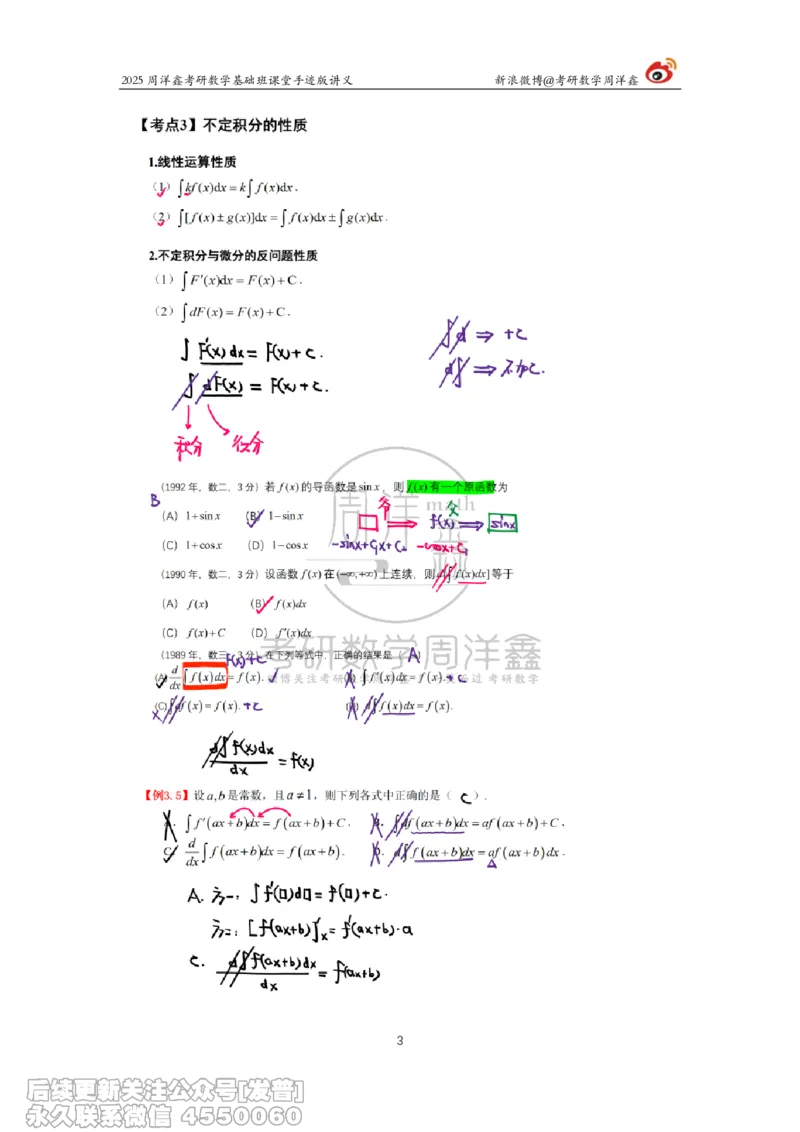 2025 周洋鑫考研数学基础班课堂手迹版讲义 新浪微博@考研数学周洋鑫
【考点3】不定积分的性质
1.线性运算性质
（1）∫kf(x)dx = k∫f(x)dx.
（2）∫[f(x)±g(x)]dx = ∫f(x)dx ± ∫g(x)dx.
2.不定积分与微分的反问题性质
（1）∫F′(x)dx = F(x)+C.
（2）∫dF(x) = F(x)+C.
∫F′(x)dx = F(x)+C.
∫dF(x) = F(x)+C.
∫d ⇒ +C
d∫ ⇒ 不加C.
积分 微分
（1992 年，数二，3 分）若 f(x) 的导函数是 sin x，则 f(x) 有一个原函数为
B
(A) 1+sin x (B) 1−sin x
爷 父
□ ⇒ f(x) ⇒ sinx
(C) 1+cos x (D) 1−cos x
-sinx+C₁x+C₂ -cosx+C₁
（1990 年，数二，3 分）设函数 f(x) 在 (−∞,+∞) 上连续，则 d[∫f(x)dx] 等于
(A) f(x) (B) f(x)dx
(C) f(x)+C (D) f′(x)dx
（1989 年，数三，3 分）在下列等式中，正确的结果是（ A ）
F(x)+C
(A) d/dx ∫f(x)dx = f(x). ∫f′(x)dx = f(x). +C
(C) ∫df(x) = f(x). +C d∫f(x)dx = f(x).
周洋鑫
math
考研数学周洋鑫
d∫f(x)dx / dx = f(x)
【例3.5】设 a,b 是常数，且 a ≠ 1，则下列各式中正确的是（ C ）.
A. ∫f′(ax+b)dx = f(ax+b)+C. B. ∫df(ax+b)dx = af(ax+b)+C.
C. d/dx ∫f(ax+b)dx = f(ax+b). D. d∫f(ax+b)dx = af(ax+b)dx.
A. 方一, ∫f′(□)d□ = f(□)+C.
方二: [f(ax+b)]′x = f′(ax+b)·a
C. d∫f(ax+b)dx / dx = f(ax+b)
3
后续更新关注公众号[发普]
永久联系微信 4550060